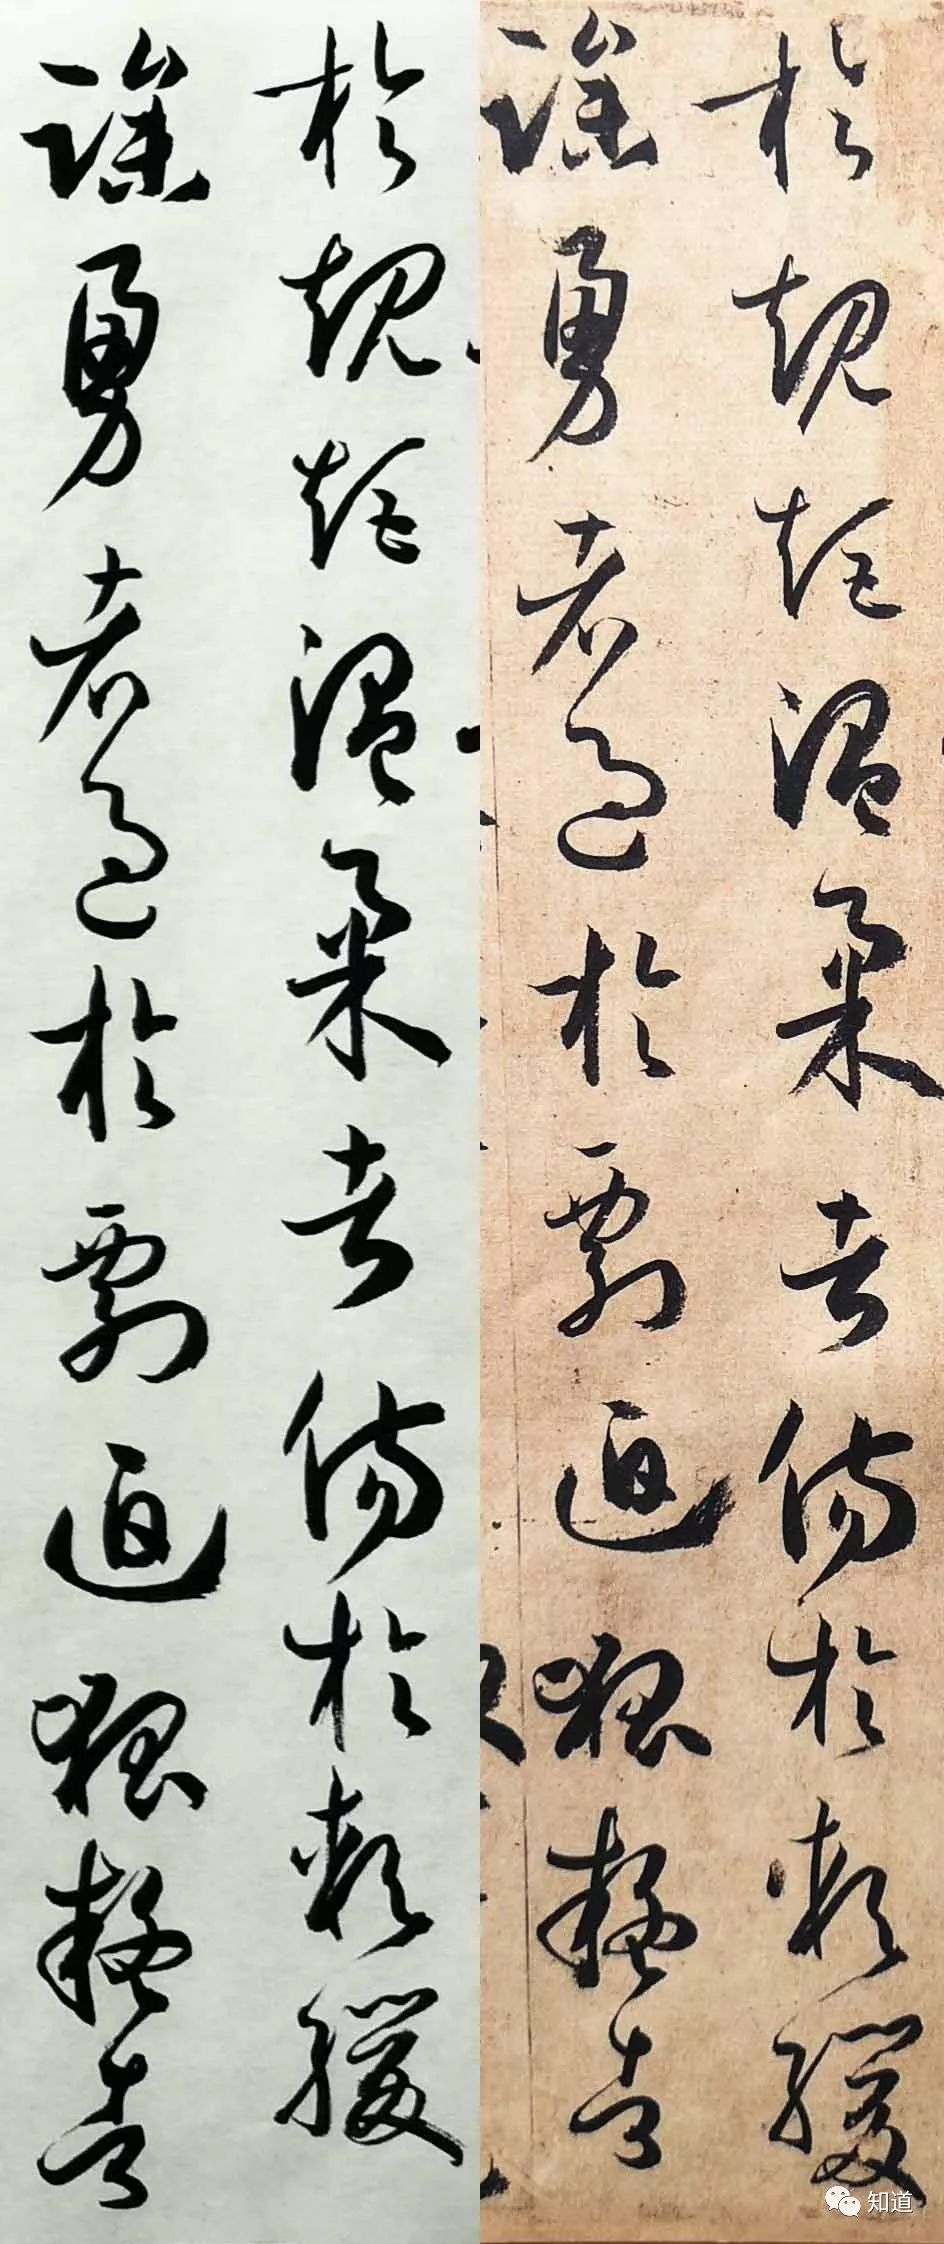 於規矩溫柔者傷於軟緩
躁勇者過於剽迫狐疑者
於規矩溫柔者傷於軟緩
躁勇者過於剽迫狐疑者
知道